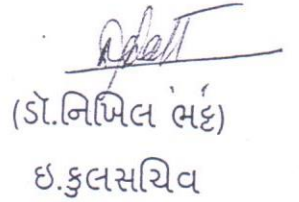 (ડૉ.નિખિલ ભટ્ટ)
ઇ.કુલસચિવ